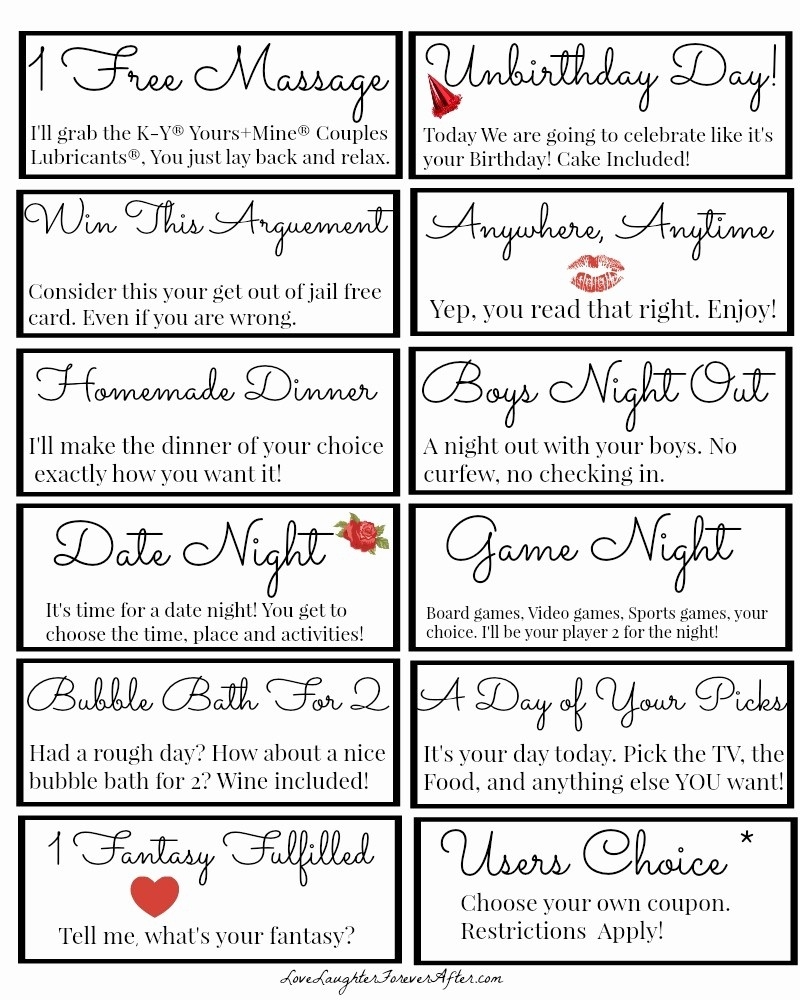 1 Free Massage
I'll grab the K-Y® Yours+Mine® Couples
Lubricants®, You just lay back and relax.
Unbirthday Day!
Today We are going to celebrate like it's
your Birthday! Cake Included!
Win This Arguement
Consider this your get out of jail free
card. Even if you are wrong.
Anywhere, Anytime
Yep, you read that right. Enjoy!
Homemade Dinner
I'll make the dinner of your choice
exactly how you want it!
Boys Night Out
A night out with your boys. No
curfew, no checking in.
Date Night
It's time for a date night! You get to
choose the time, place and activities!
Game Night
Board games, Video games, Sports games, your
choice. I'll be your player 2 for the night!
Bubble Bath For 2
Had a rough day? How about a nice
bubble bath for 2? Wine included!
A Day of Your Picks
It's your day today. Pick the TV, the
Food, and anything else YOU want!
1 Fantasy Fulfilled
Tell me, what's your fantasy?
Users Choice *
Choose your own coupon.
Restrictions Apply!
LoveLaughterForeverAfter.com